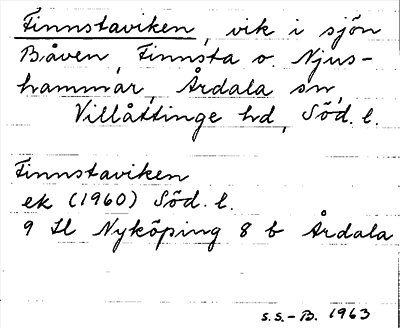 Finnstaviken, vik i sjön
Båven, Finnsta o. Njus-
hammar, Årdala sn,
Villåttinge hd, Söd. l.
Finnstaviken
ek (1960) Söd. l.
9 Il Nyköping 8 b Årdala
S.S.-B. 1963